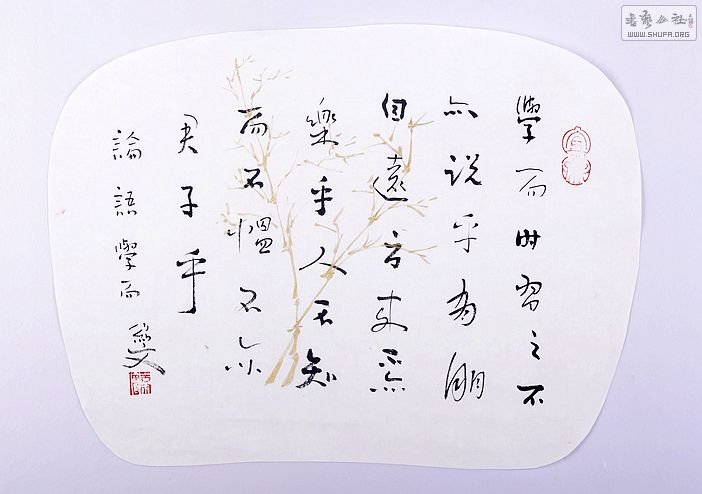 書藝公社
WWW.SHUFA.ORG
學而時習之不
亦説乎有朋
自遠方来不亦
樂乎人不知
而不愠不亦
君子乎
論語學而